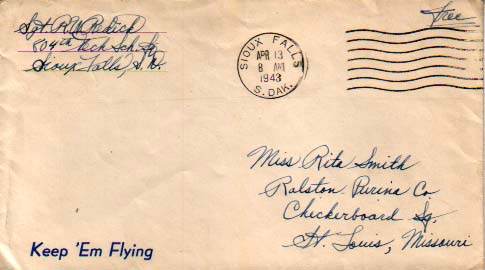 Sgt. R.W. Redick
804th Tech Sch. Sq.
Sioux Falls, S.D.
SIOUX FALLS
APR 13
8 AM
1943
S. DAK.
Free
Miss Rita Smith
Ralston Purina Co
Checkerboard Sq.
St. Louis, Missouri
Keep 'Em Flying